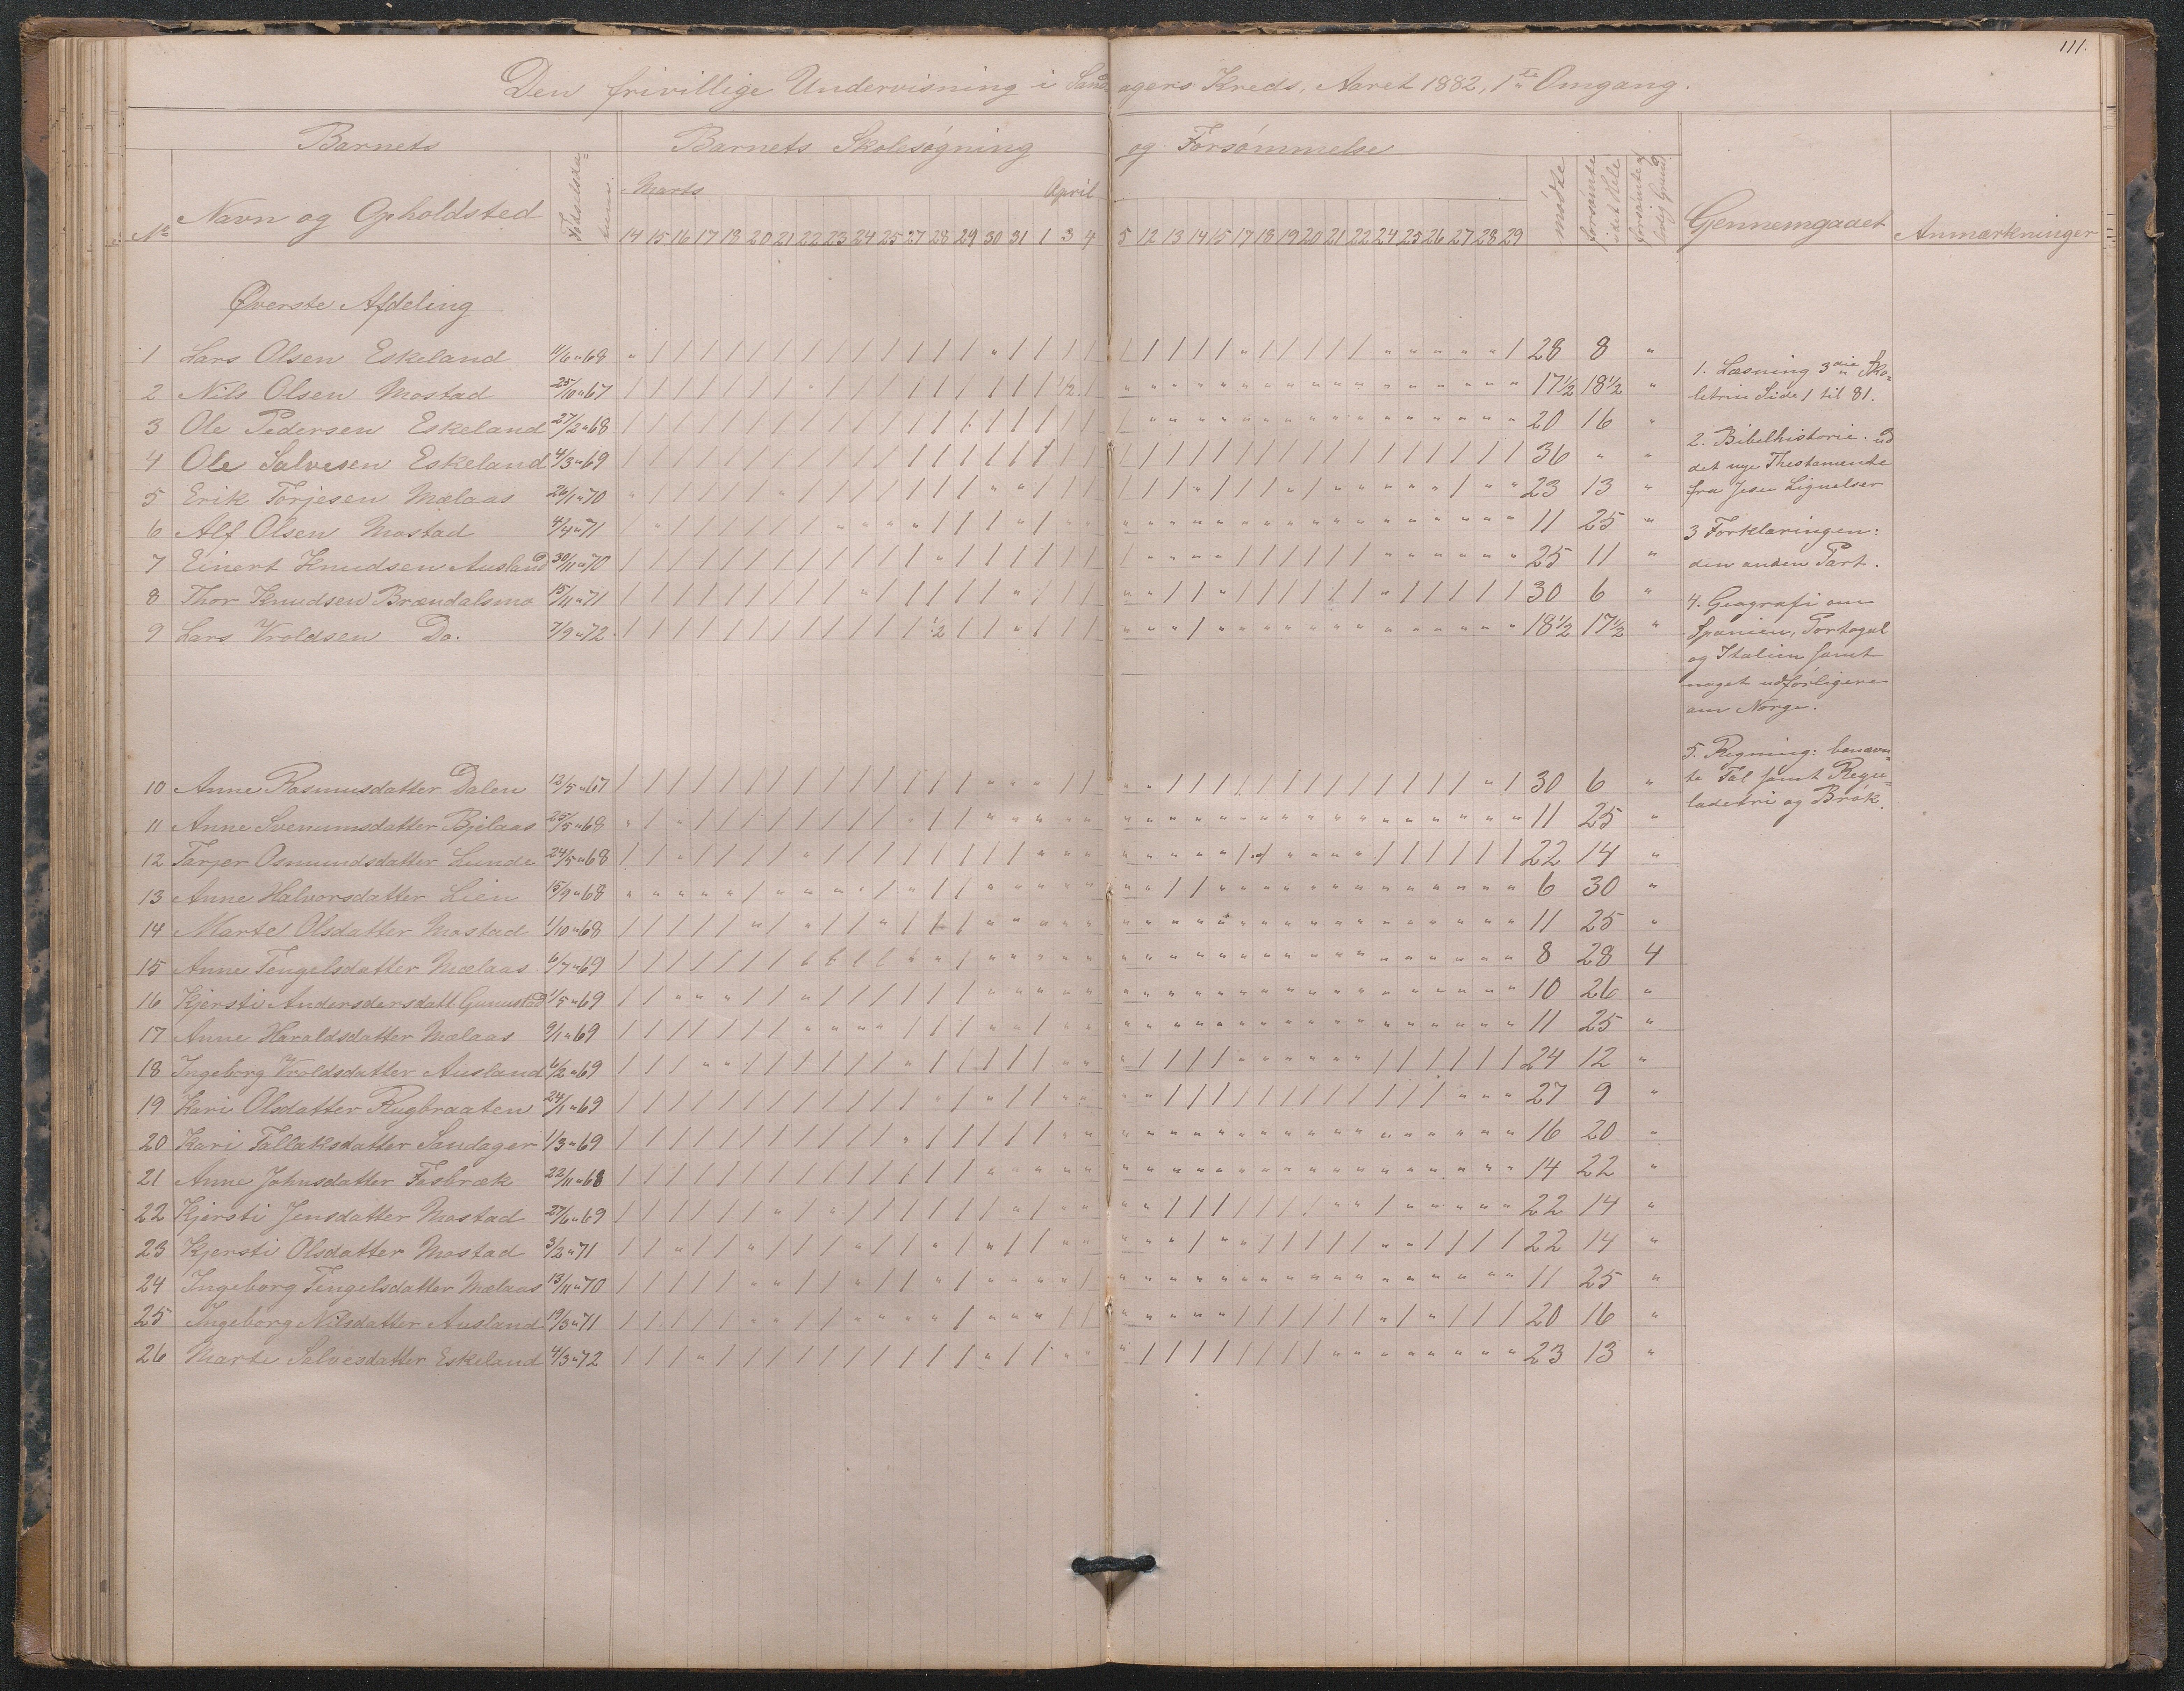 111.
Den frivillige Undervisning i Sandagers Kreds, Aaret 1882, 1ste Omgang.
Barnets
Barnets Skolesøgning og Forsømmelse
No
Navn og Opholdsted
Marts
April
mødte
forsømte idet Hele
forsømte af lovlig Grund
Gennemgaaet
Anmærkninger
14 15 16 17 18 20 21 22 23 24 25 27 28 29 30 31 1 3 4 5 12 13 14 15 17 18 19 20 21 22 24 25 26 27 28 29
Øverste Afdeling
1 Lars Olsen Eskeland 11/6 "68 28 8 "
2 Nils Olsen Mostad 25/10 "67 17 1/2 18 1/2 "
3 Ole Pedersen Eskeland 27/2 "68 20 16 "
4 Ole Salvesen Eskeland 4/3 "69 36 " "
5 Erik Torjesen Mælaas 26/1 "70 23 13 "
6 Alf Olsen Mostad 4/4 "71 11 25 "
7 Einert Knudsen Ausland 30/11 "70 25 11 "
8 Thor Knudsen Brændalsmo 15/11 "71 30 6 "
9 Lars Vroldsen Do. 7/9 "72 18 1/2 17 1/2 "
10 Anne Rasmusdatter Dalen 12/5 "67 30 6 "
11 Anne Svenumsdatter Bjelaas 25/5 "68 11 25 "
12 Tarjer Osmundsdatter Lunde 24/5 "68 22 14 "
13 Anne Halvorsdatter Lien 15/9 "68 6 30 "
14 Marte Olsdatter Mostad 1/10 "68 11 25 "
15 Anne Tengelsdatter Mælaas 6/7 "69 8 28 4
16 Kjersti Andersdersdatt. Gunustad 1/5 "69 10 26 "
17 Anne Haraldsdatter Mælaas 9/1 "69 11 25 "
18 Ingeborg Vroldsdatter Ausland 6/2 "69 24 12 "
19 Kari Olsdatter Rugbraaten 24/1 "69 27 9 "
20 Kari Tallaksdatter Sandager 1/3 "69 16 20 "
21 Anne Johnsdatter Fosbræk 22/11 "68 14 22 "
22 Kjersti Jensdatter Mostad 27/6 "69 22 14 "
23 Kjersti Olsdatter Mostad 3/2 "71 22 14 "
24 Ingeborg Tengelsdatter Mælaas 13/11 "70 11 25 "
25 Ingeborg Nilsdatter Ausland 19/3 "71 20 16 "
26 Marte Salvesdatter Eskeland 4/3 "72 23 13 "
1. Læsning 3die Sko-
letrin Side 1 til 81.
2. Bibelhistorie. ud
det nye Thestamente
fra Jesu Lignelser
3 Forklaringen:
den anden Part.
4. Geografi om
Spanien, Portogal
og Italien samt
noget udførligere
om Norge.
5. Regning: benævn-
te Tal samt Regu-
ladetri og Brøk.